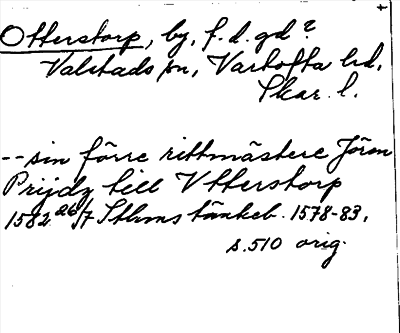 Otterstorp, by, f.d. gd?
Valstads sn, Vartofta hd,
Skar. l.
-- sin förre rittmästere Jören
Prijdz till Vtterstorp
1582 26/7 Sthms tänkeb. 1578-83,
s. 510 orig.